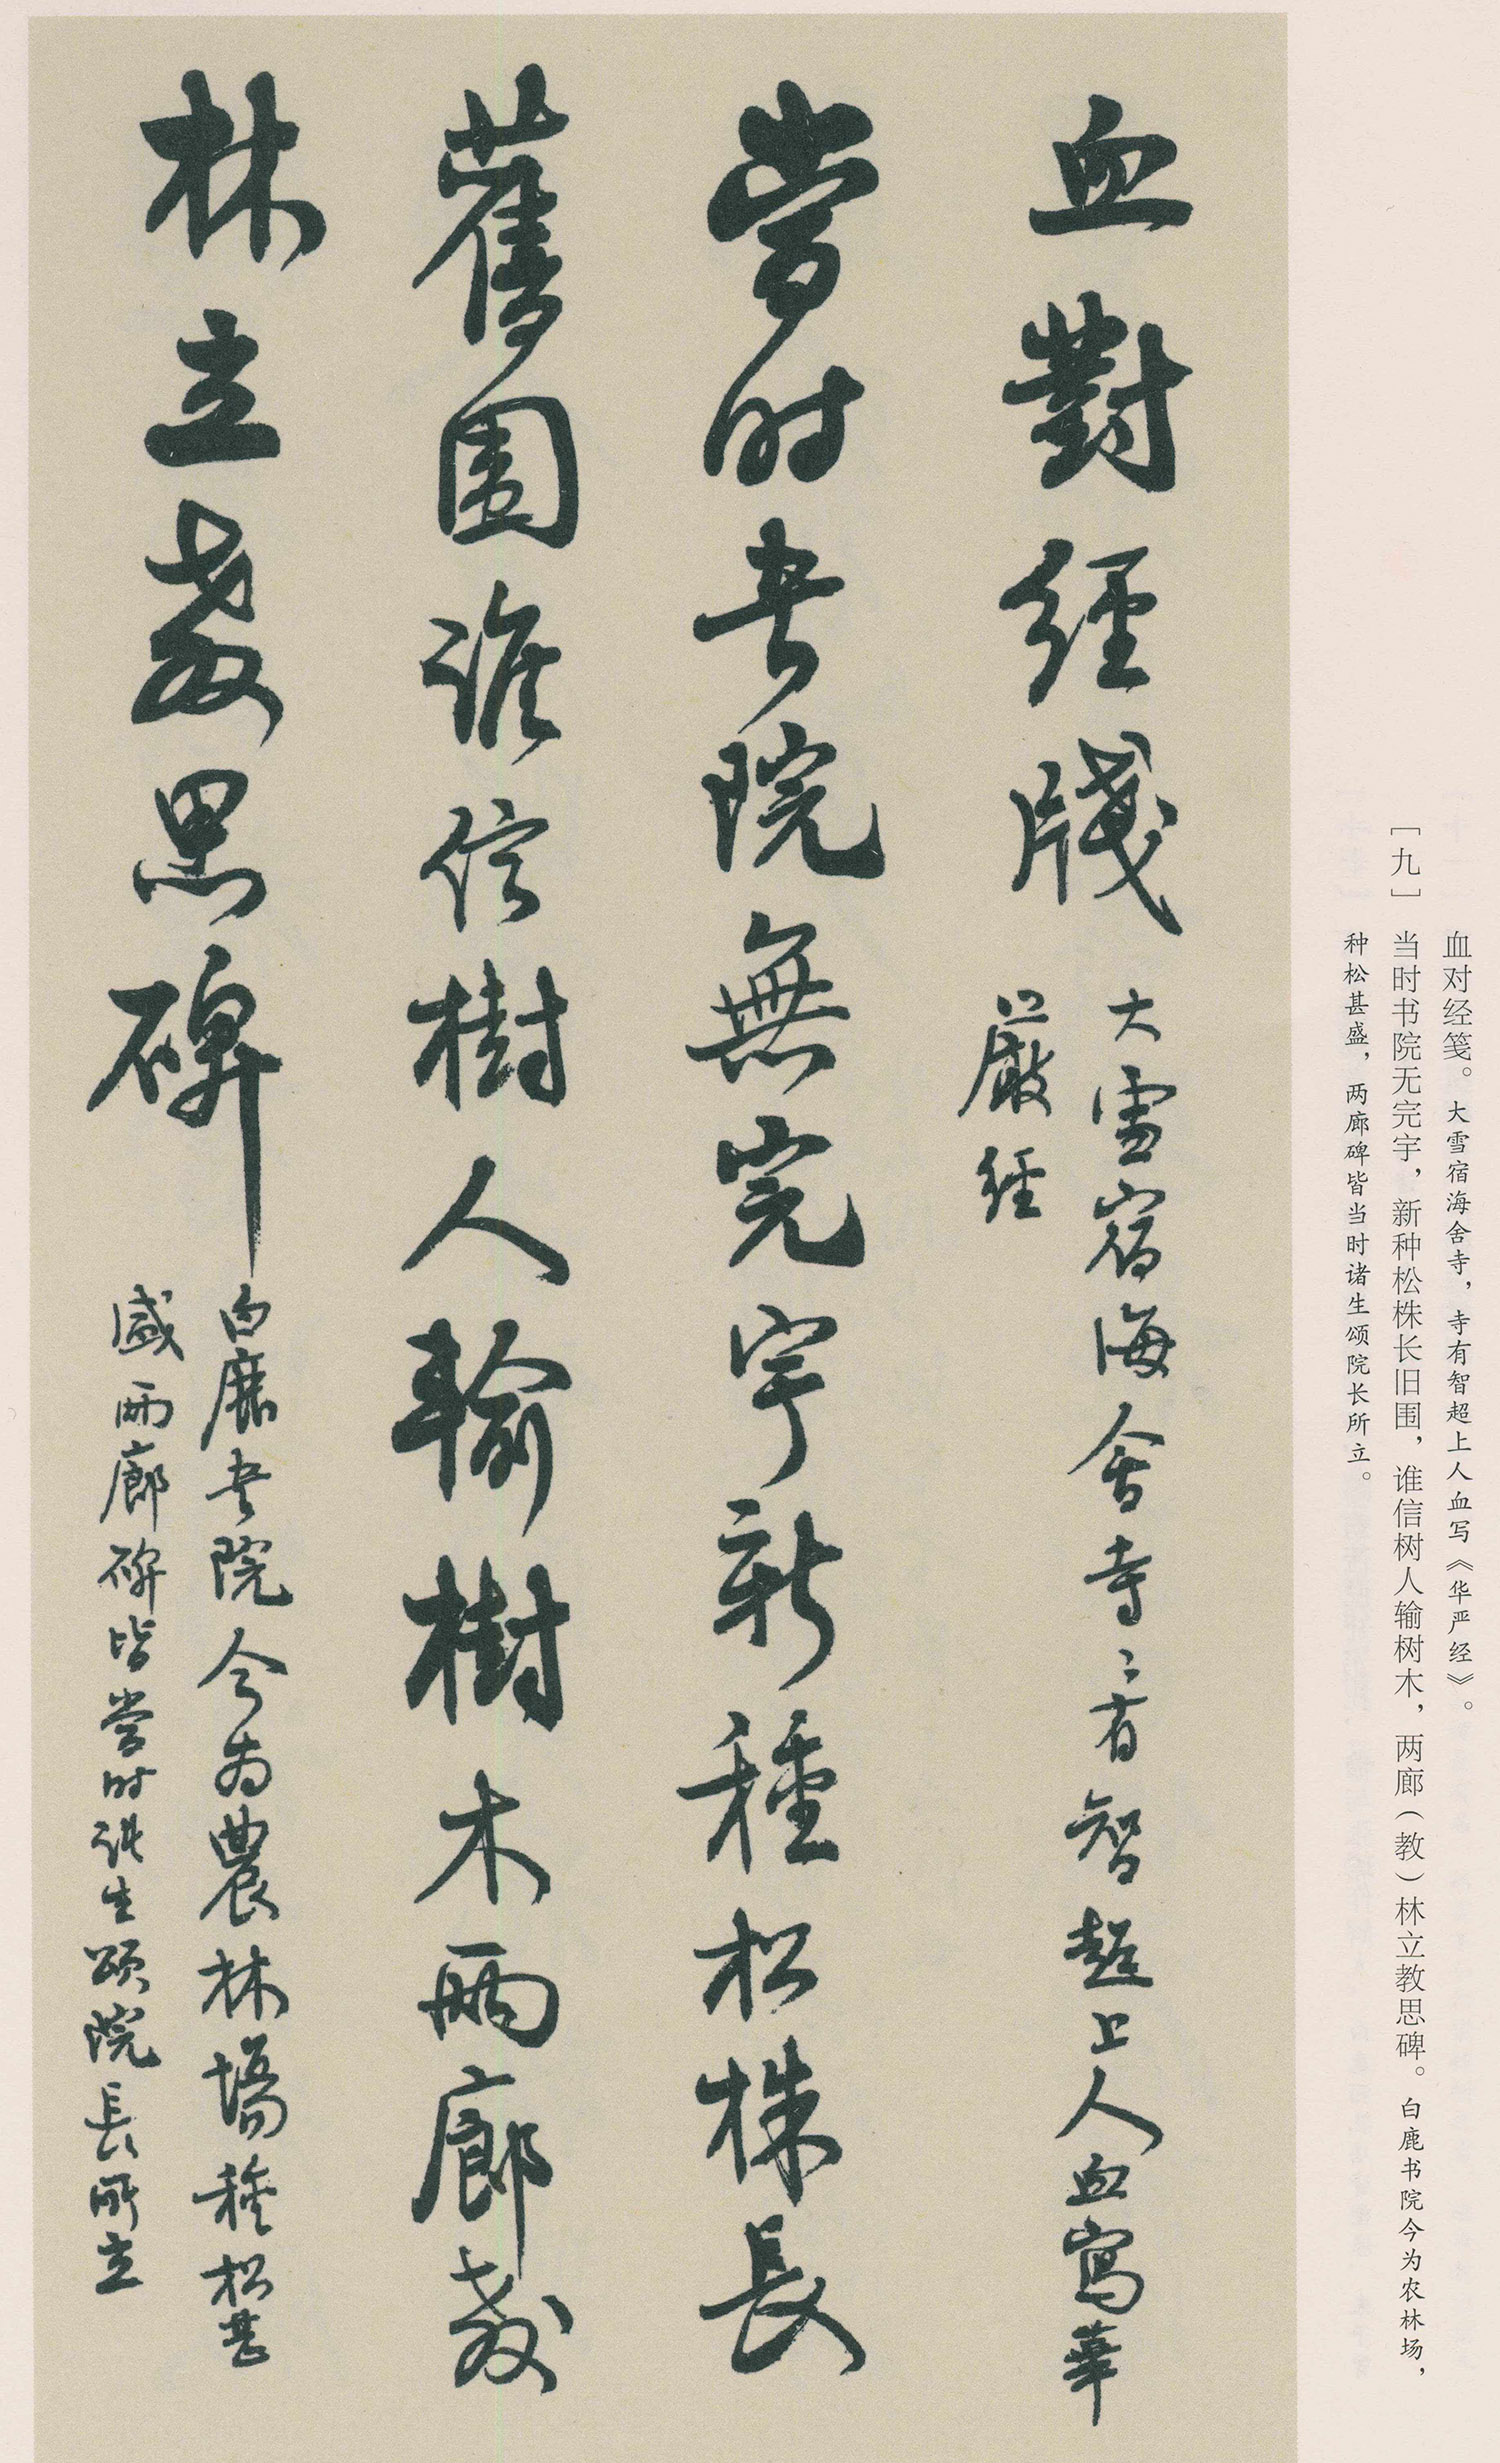 血对经笺。大雪宿海舍寺，寺有智超上人血写《华严经》。
［九］当时书院无完宇，新种松株长旧围，谁信树人输树木，两廊（教）林立教思碑。白鹿书院今为农林场，
种松甚盛，两廊碑皆当时诸生颂院长所立。
血對經牋
大雪宿海舍寺〻有智超上人血寫華
嚴經
當时書院無完宇新種松株長
舊圍誰信樹人輸樹木兩廊教
林立教思碑
白鹿書院今為農林場種松甚
盛兩廊碑皆當时諸生頌院長所立